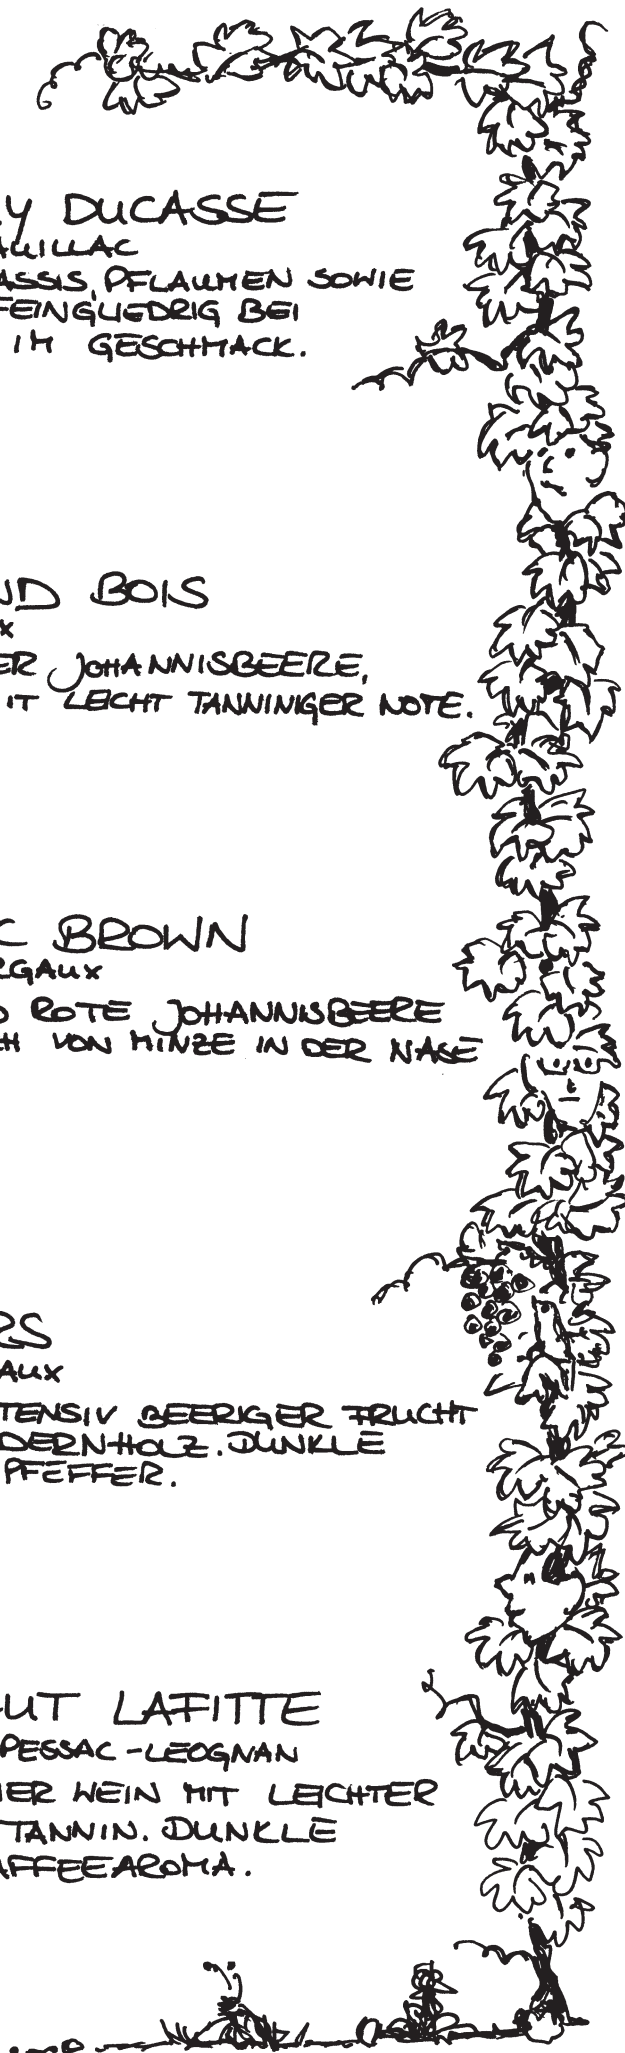 Y DUCASSE
AUILLAC
ASSIS, PFLAUMEN SOWIE
FEINGLIEDRIG BEI
IM GESCHMACK.
ND BOIS
X
ER JOHANNISBEERE,
IT LEICHT TANNINIGER NOTE.
C BROWN
RGAUX
D ROTE JOHANNISBEERE
CH VON MINZE IN DER NASE
RS
AUX
TENSIV BEERIGER FRUCHT
DERNHOLZ. DUNKLE
PFEFFER.
AUT LAFITTE
PESSAC-LEOGNAN
HER WEIN MIT LEICHTER
TANNIN. DUNKLE
AFFEEAROMA.